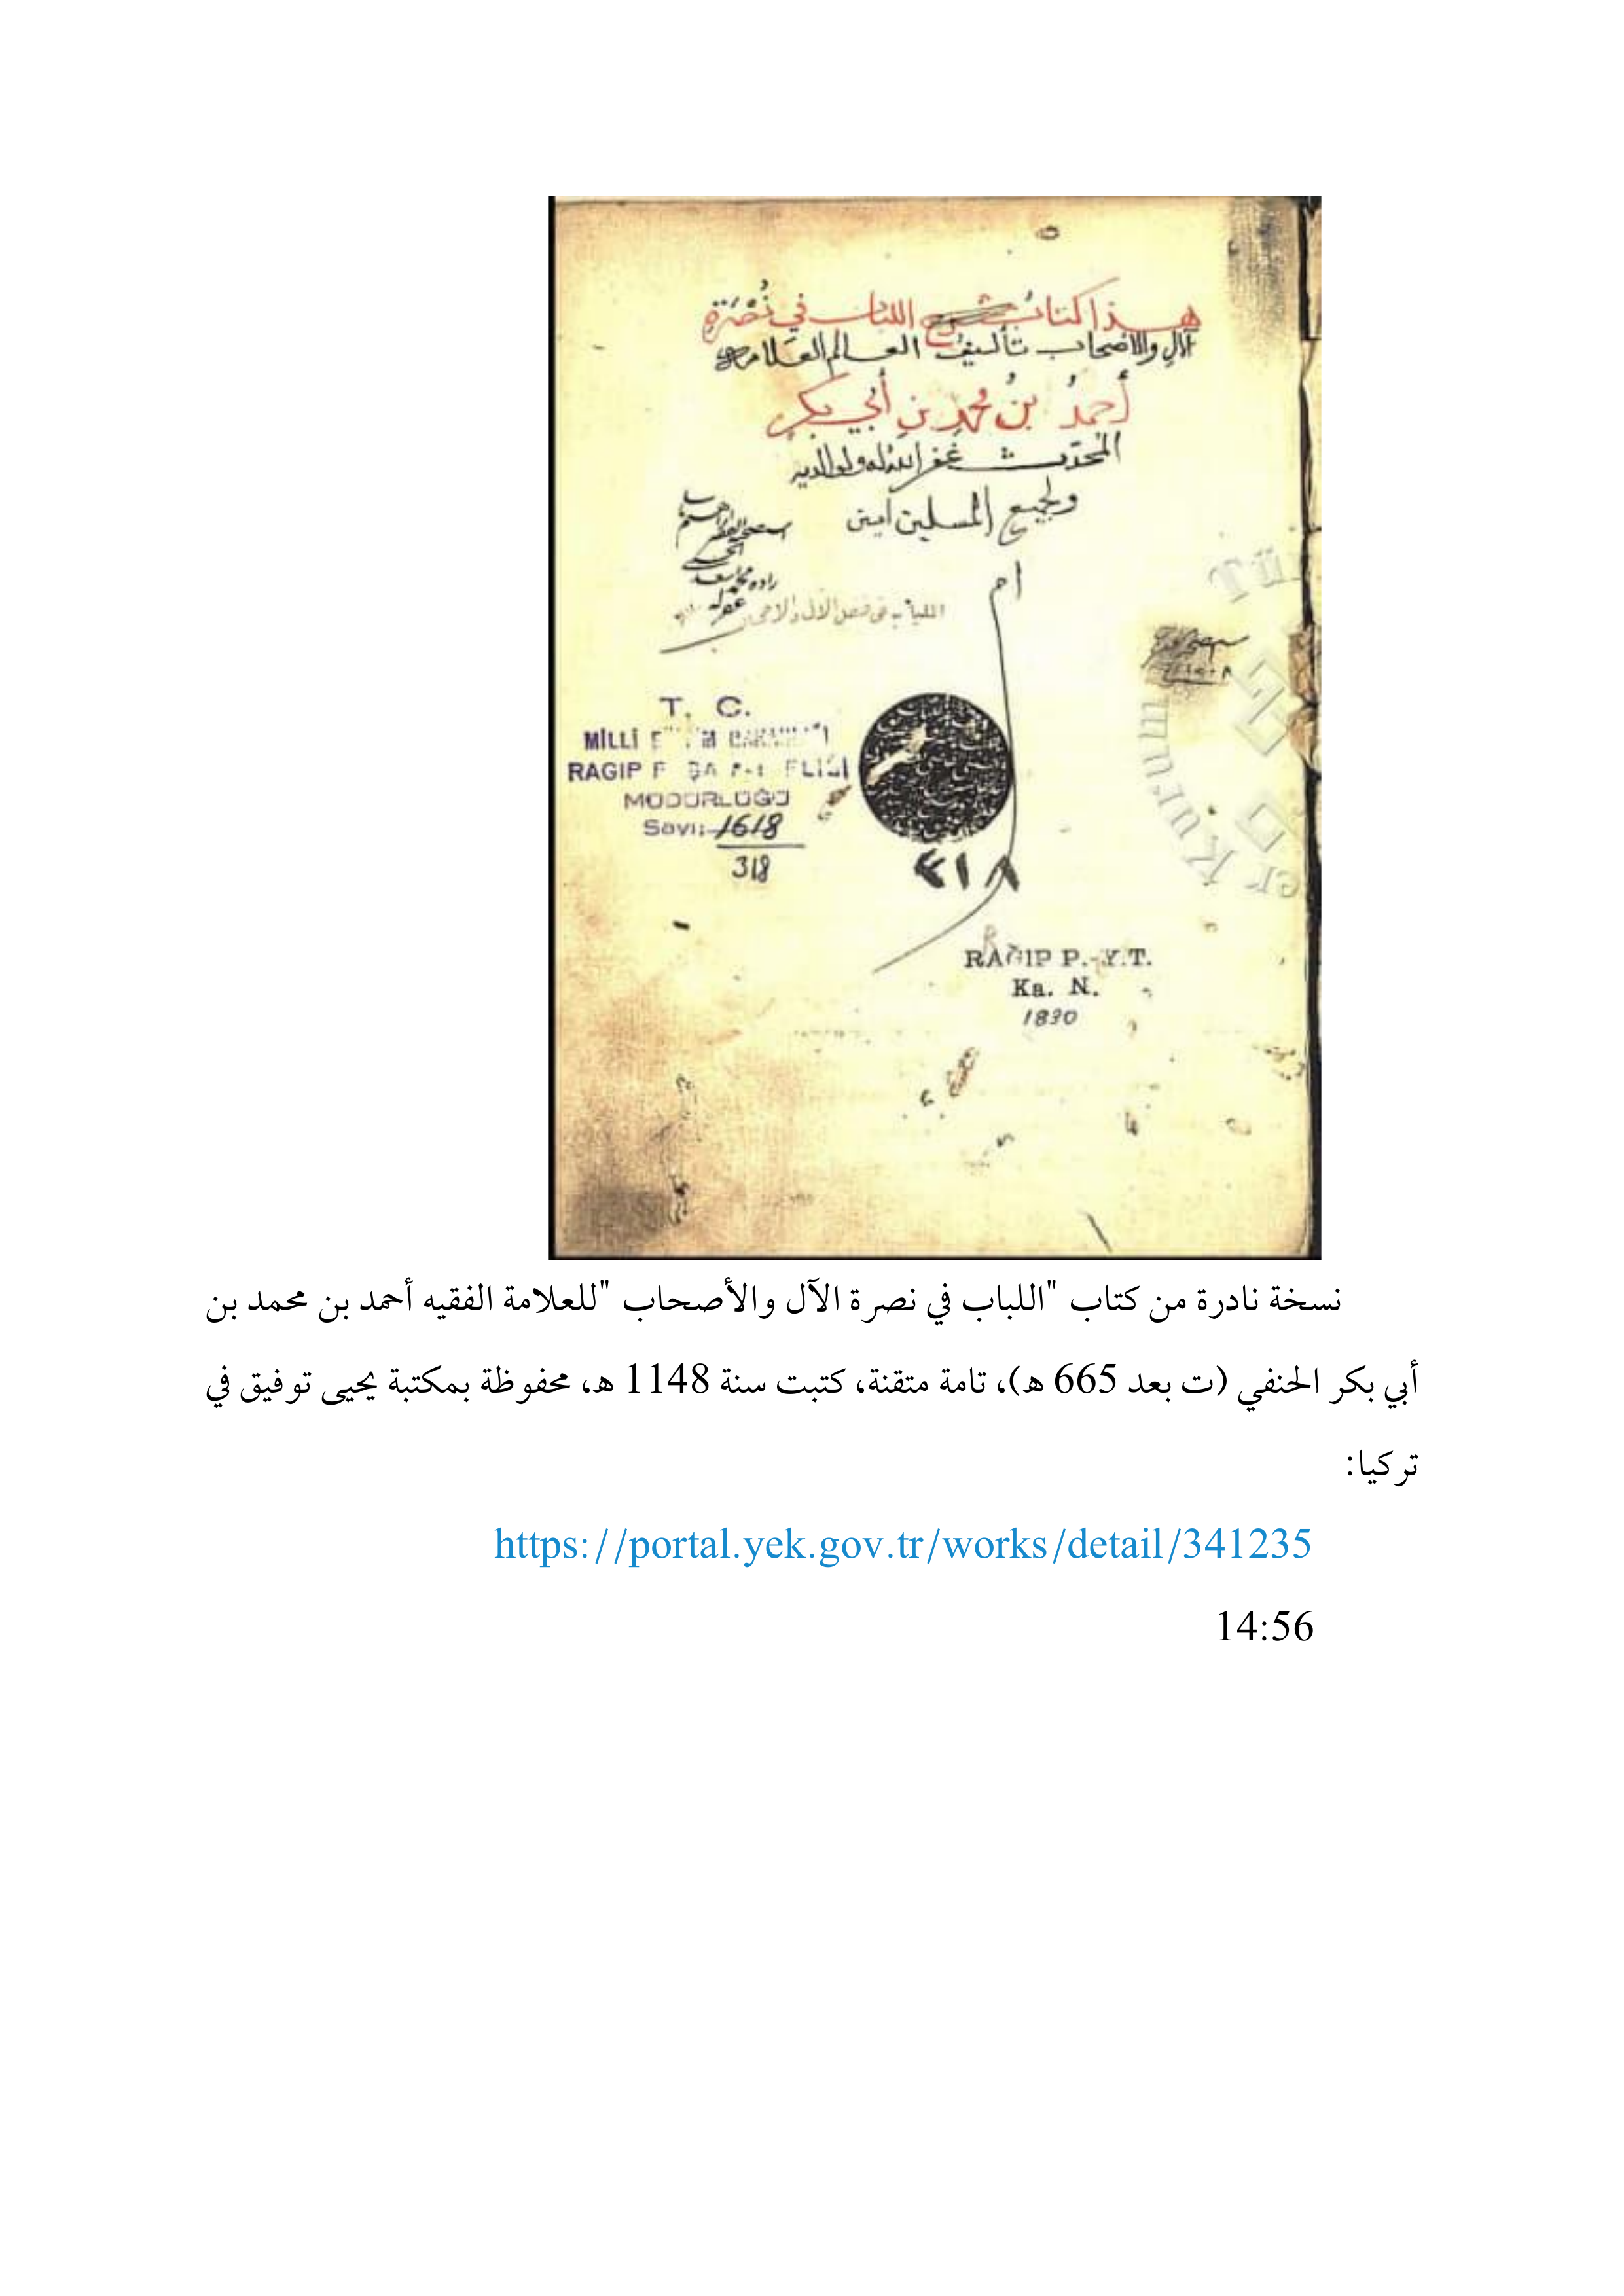 هذا كتاب شرح اللباب في نُصْرَةِ
الآلِ والاصحاب تأليفُ العالم العَلامه
أحمدُ بنُ محمّد بنِ أبي بكرٍ
المحدّث غفر الله له ولوالديه
ولجميع المسلمين امين
ام
T. C.
MİLLÎ
RAGIP
MÜDÜRLÜĞÜ
Sayı: 1618
318
٤١٨
RAĞIP P.-Y.T.
Ka. N.
1830
نسخة نادرة من كتاب "اللباب في نصرة الآل والأصحاب "للعلامة الفقيه أحمد بن محمد بن
أبي بكر الحنفي (ت بعد 665 هـ)، تامة متقنة، كتبت سنة 1148 هـ، محفوظة بمكتبة يحيى توفيق في
تركيا:
https://portal.yek.gov.tr/works/detail/341235
14:56